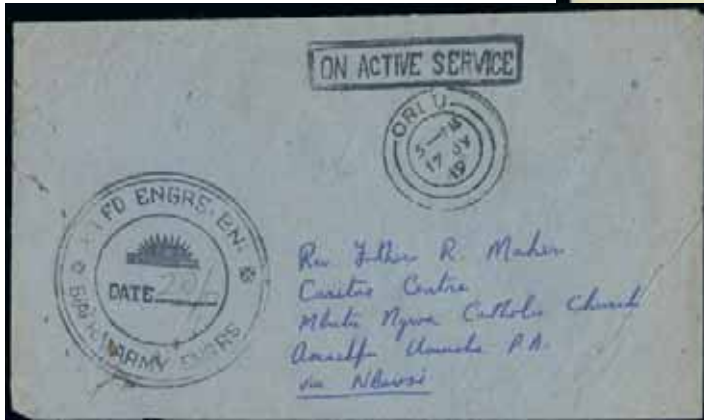 ON ACTIVE SERVICE
ORLU
5 PM
17 JY
19
FD ENGRS. BN.
DATE 20/6
ARMY ENGRS
Rev. Father R. Maher
Caritas Centre
Mbutu Ngwa Catholic Church
Umuaha P.A.
via Nbawsi